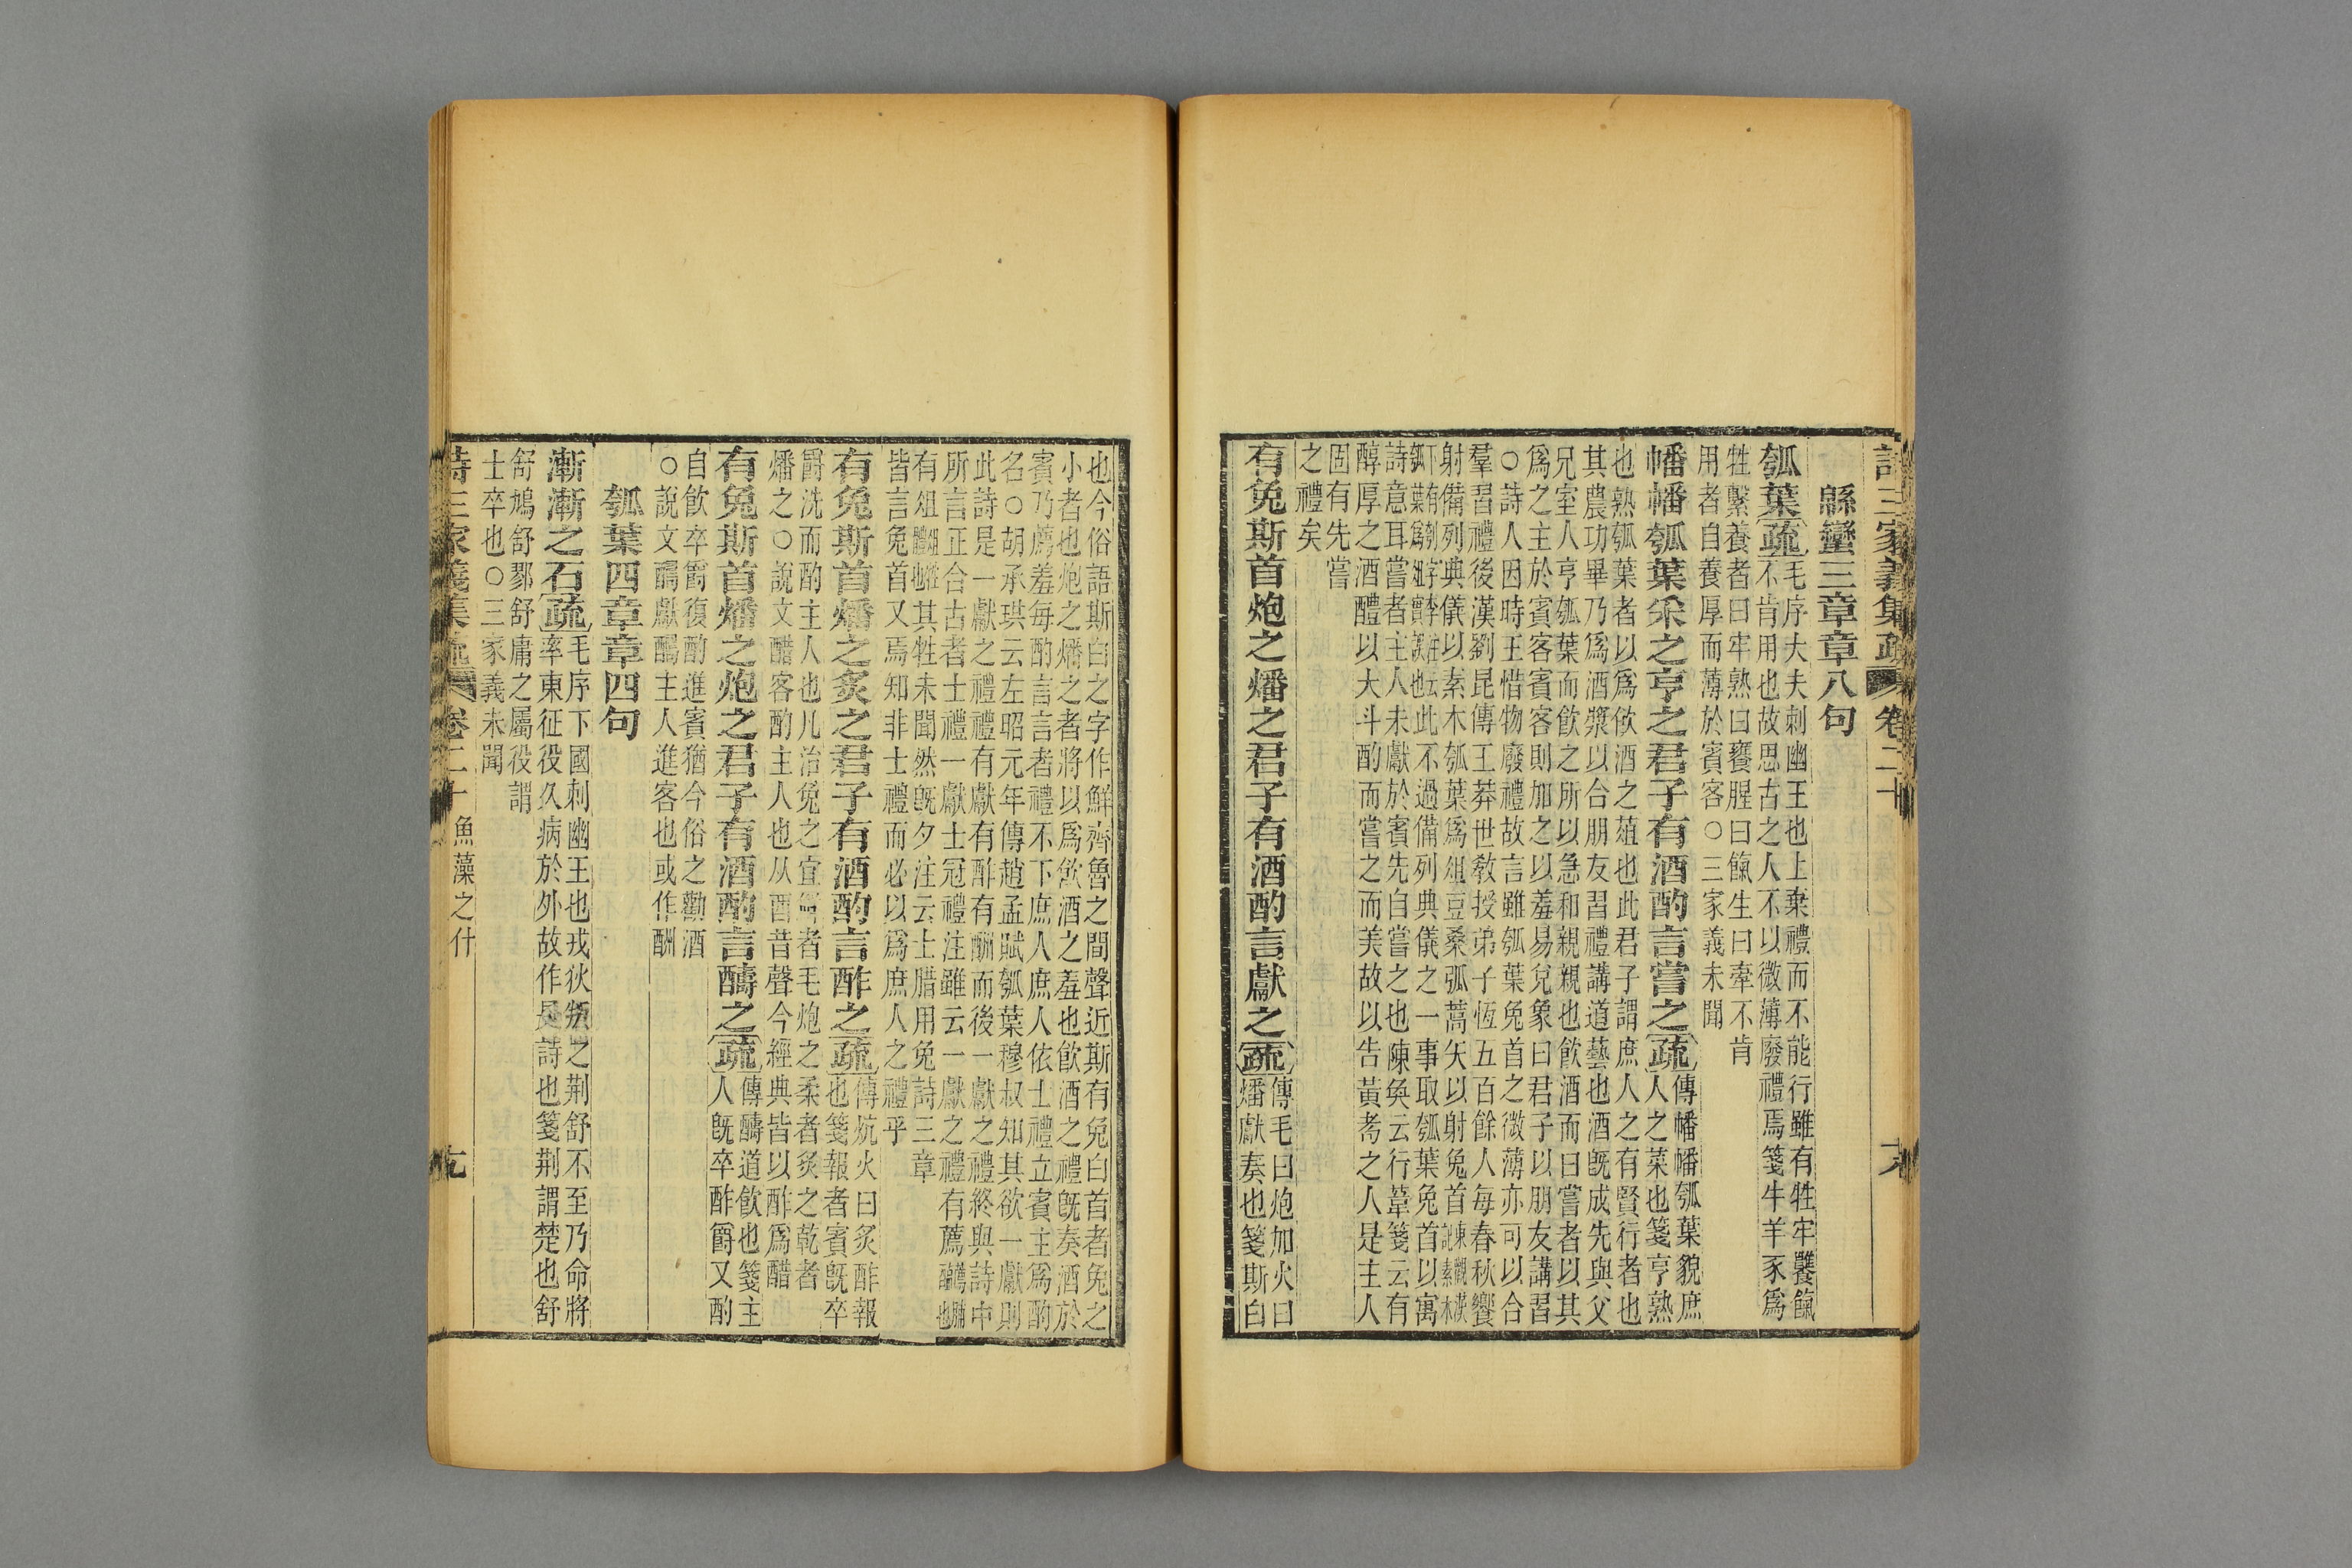 詩三家義集疏 卷二十
緜蠻三章章八句
瓠葉疏毛序大夫刺幽王也上棄禮而不能行雖有牲牢饔餼
不肯用也故思古之人不以微薄廢禮焉箋牛羊豕爲
牲繫養者曰牢熟曰饔腥曰餼生曰牽不肯
用者自養厚而薄於賓客○三家義未聞
幡幡瓠葉采之亨之君子有酒酌言嘗之疏傳幡幡瓠葉貌庶
人之菜也箋亨熟
也熟瓠葉者以爲飮酒之葅也此君子謂庶人之有賢行者也
其農功畢乃爲酒漿以合朋友習禮講道藝也酒旣成先與父
兄室人亨瓠葉而飮之所以急和親親也飮酒而曰嘗者以其
爲之主於賓客賓客則加之以羞易兌象曰君子以朋友講習
○詩人因時王惜物廢禮故言雖瓠葉兔首之微薄亦可以合
羣習禮後漢劉昆傳王莽世敎授弟子恆五百餘人每春秋饗
射備列典儀以素木瓠葉爲俎豆桑弧蒿矢以射兔首
此不過備列典儀之一事取瓠葉兔首以寓
詩意耳嘗者主人未獻於賓先自嘗之也陳奐云行葦箋云有
醇厚之酒醴以大斗酌而嘗之而美故以告黃耇之人是主人
固有先嘗
之禮矣
有兔斯首炮之燔之君子有酒酌言獻之疏傳毛曰炮加火曰
燔獻奏也箋斯白
也今俗語斯白之字作鮮齊魯之間聲近斯有兔白首者兔之
小者也炮之燔之者將以爲飮酒之羞也飮酒之禮旣奏酒於
賓乃薦羞每酌言言者禮不下庶人庶人依士禮立賓主爲酌
名○胡承珙云左昭元年傳趙孟賦瓠葉穆叔知其欲一獻則
此詩是一獻之禮禮有獻有酢有酬而後一獻之禮終與詩中
所言正合古者士禮一獻士冠禮注雖云一獻之禮有薦
有俎其牲未聞然旣夕注云士腊用兔詩三章
皆言兔首又焉知非士禮而必以爲庶人之禮乎
有兔斯首燔之炙之君子有酒酌言酢之疏傳炕火曰炙酢報
也箋報者賓旣卒
爵洗而酌主人也凡治兔之宜鮮者毛炮之柔者炙之乾者
燔之○說文醋客酌主人也从酉昔聲今經典皆以酢爲醋
有兔斯首燔之炮之君子有酒酌言醻之疏傳醻道飮也箋主
人旣卒酢爵又酌
自飮卒爵復酌進賓猶今俗之勸酒
○說文醻獻醻主人進客也或作酬
瓠葉四章章四句
漸漸之石疏毛序下國刺幽王也戎狄叛之荆舒不至乃命將
率東征役久病於外故作是詩也箋荆謂楚也舒
舒鳩舒鄝舒庸之屬役謂
士卒也○三家義未聞
詩三家義集疏 卷二十 魚藻之什